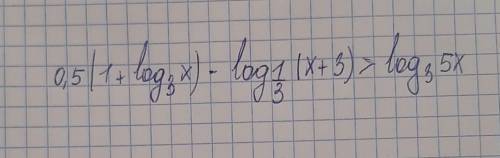 0,5(1+log₃x) - log_{1/3}(x+3) > log₃5x